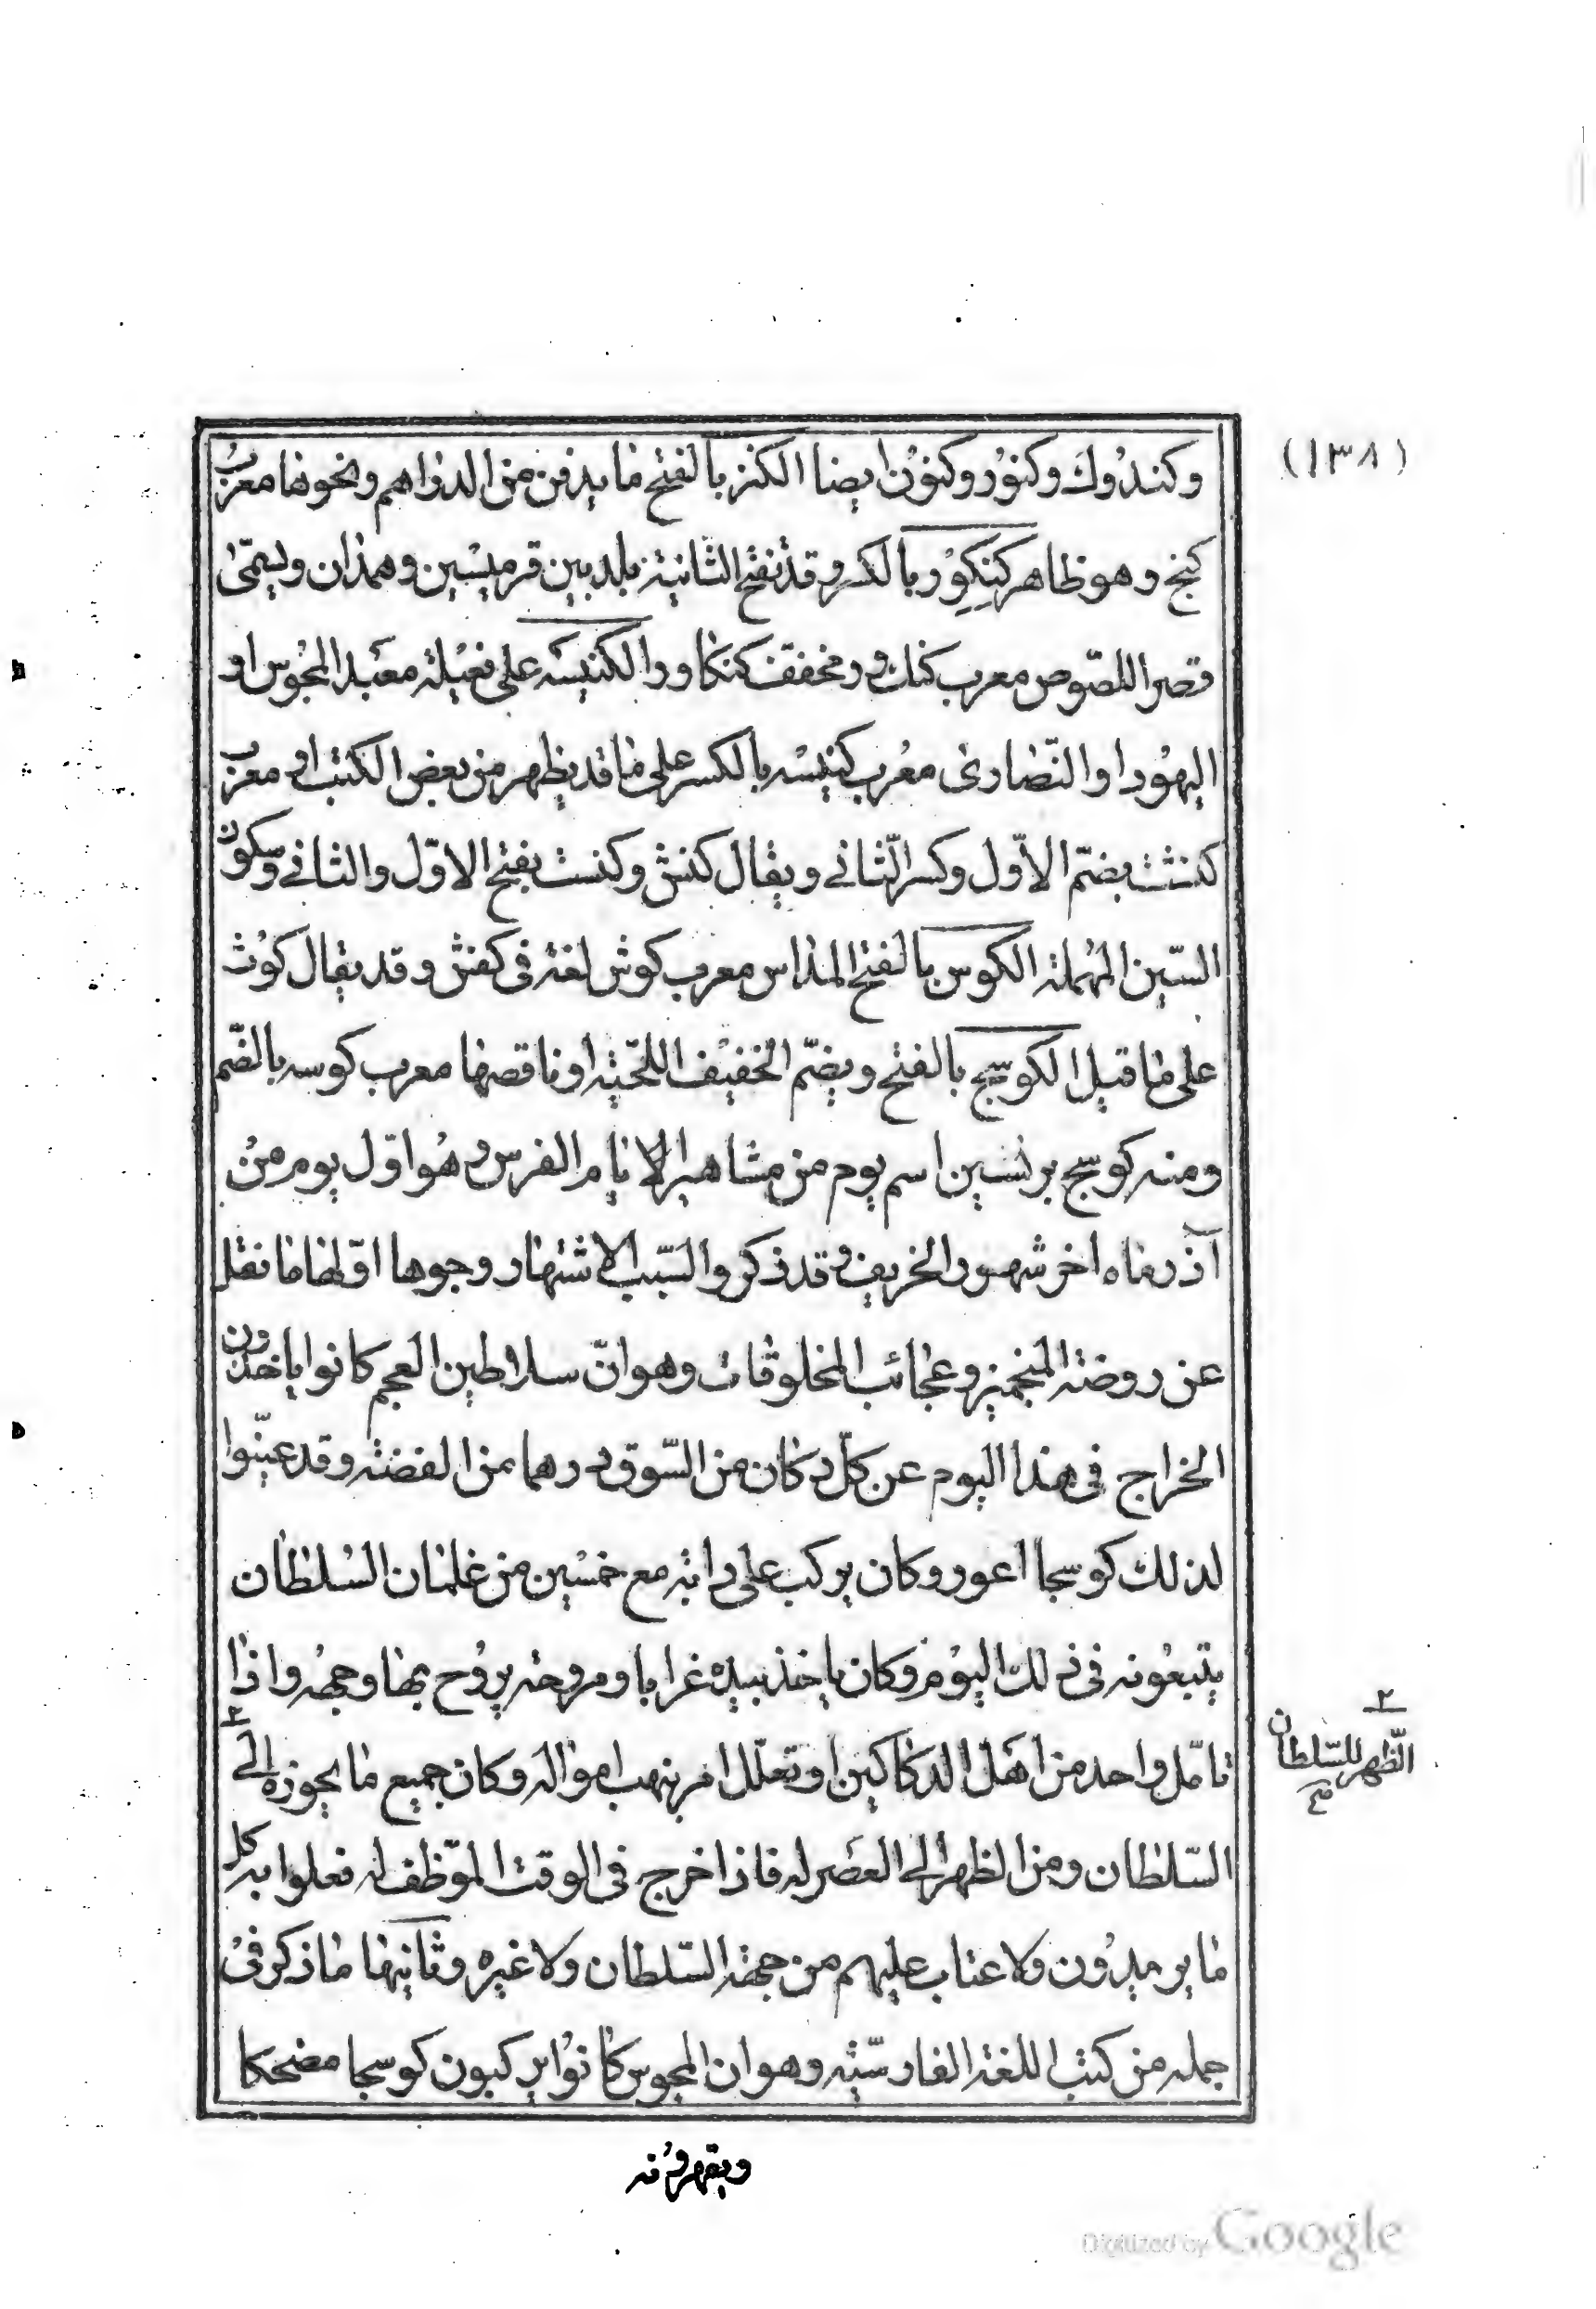 (١٣٨)
وكندُوك وكنوُر وكنوُن ايضا الكنز بالفتح ما يدفن من الدراهم ونحوها معرّب
كنج وهو ظاهر كِنكِوَر بالكسر وقد تفتح الثانية بلد بين قرميسين وهمذان ويسمّى
قصر اللصّوص معرب كنك ور مخفف كنكاور والكنيسَه على فعيلة معبَد المجُوس او
اليهُود او النّصارى معرب كنيسه بالكسر على ما قد يظهر من بعض الكتب او معرّب
كنشت بضمّ الاوّل وكسر الثّاني ويقال كنش وكنست بفتح الاوّل والثاني وسكون
السّين المهُملة الكوس بالفتح المداس معرب كوش لغة في كفش وقد يقال كوُث
على ما قيل الكوسج بالفتح ويضمّ الخفيف اللّحية او ناقصها معرب كوسه بالضّم
ومنه كوسج برنشين اسم يوم من مشاهير الايام الفرس وهُو اوّل يوم من
آذرماه اخر شهور الخريف وقد ذكروا السّبب الاشتهار وجوها اوّلها ما نقل
عن روضة المنجمين وعجائب المخلوقات وهو انّ سلاطين العجم كانوا ياخذون
الخراج في هذا اليوم عن كلّ دكان من السّوق درهما من الفضة وقد عيّنوا
لذلك كوسجا اعور وكان يركب على دابة مع خمسين من غلمان السُلطان
يتبعُونه في ذلك اليوُم وكان ياخذ بيده غرابا ومروحة يروُح بها وجهه واذا
تامّل واحد من اهَل الدكاكين او تعلّل امر بنهب امواله وكان جميع ما يحوزه الى ٢
السّلطان ومن الظهر الى العصَر له فاذا خرج في الوقت الموّظف له فعلوا به كل
ما يريدُون ولا عتاب عليهم من جهة السّلطان ولا غيره وثانيها ما ذكر في
جمله من كتب اللغة الفارسّية وهو ان المجوس كانوُا يركبون كوسجا مضحكا
٢
الظّهر للسّلطان
صح
ويقهروُنه
Digitized by Google